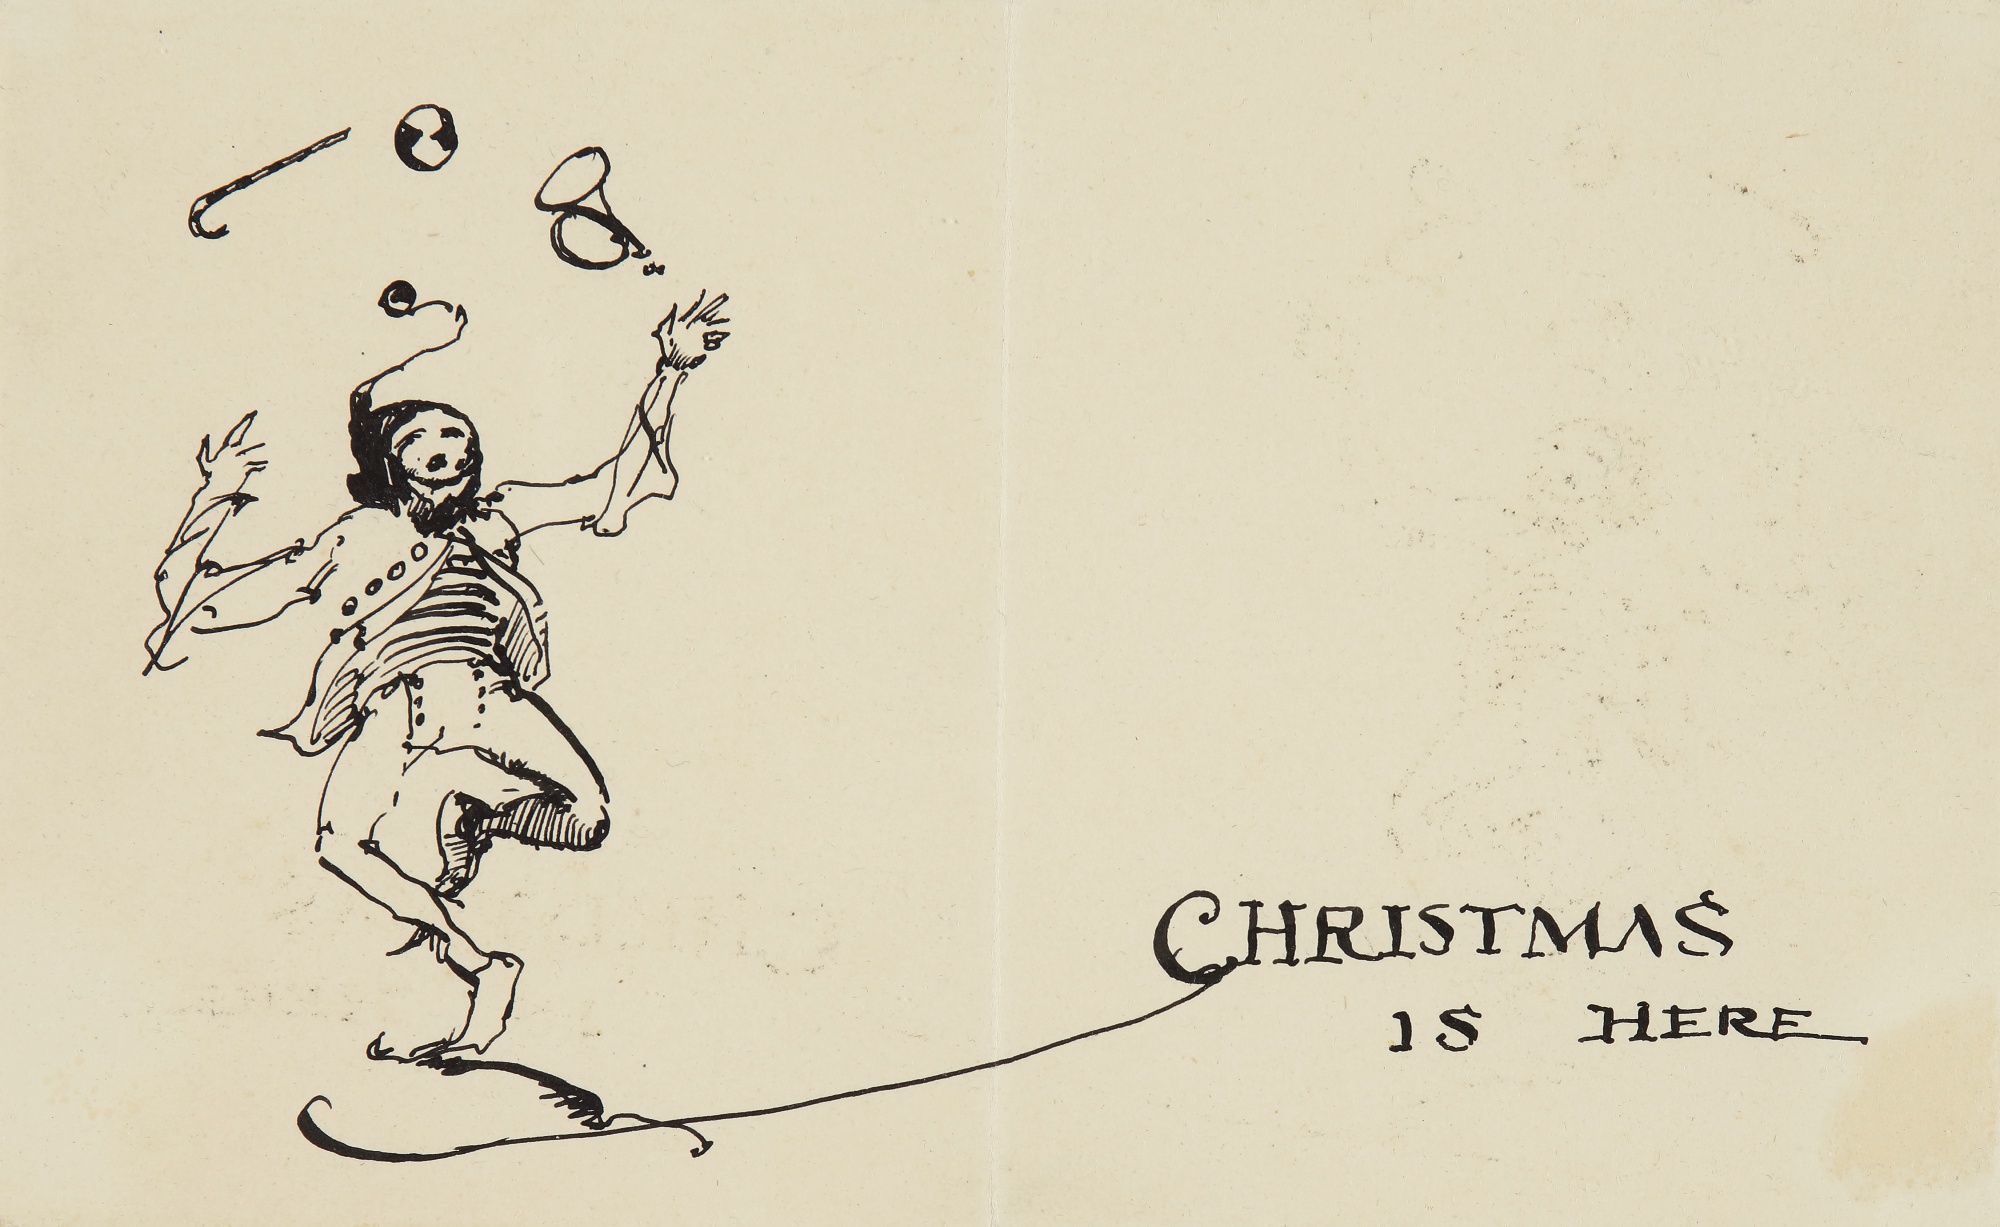 CHRISTMAS
IS HERE